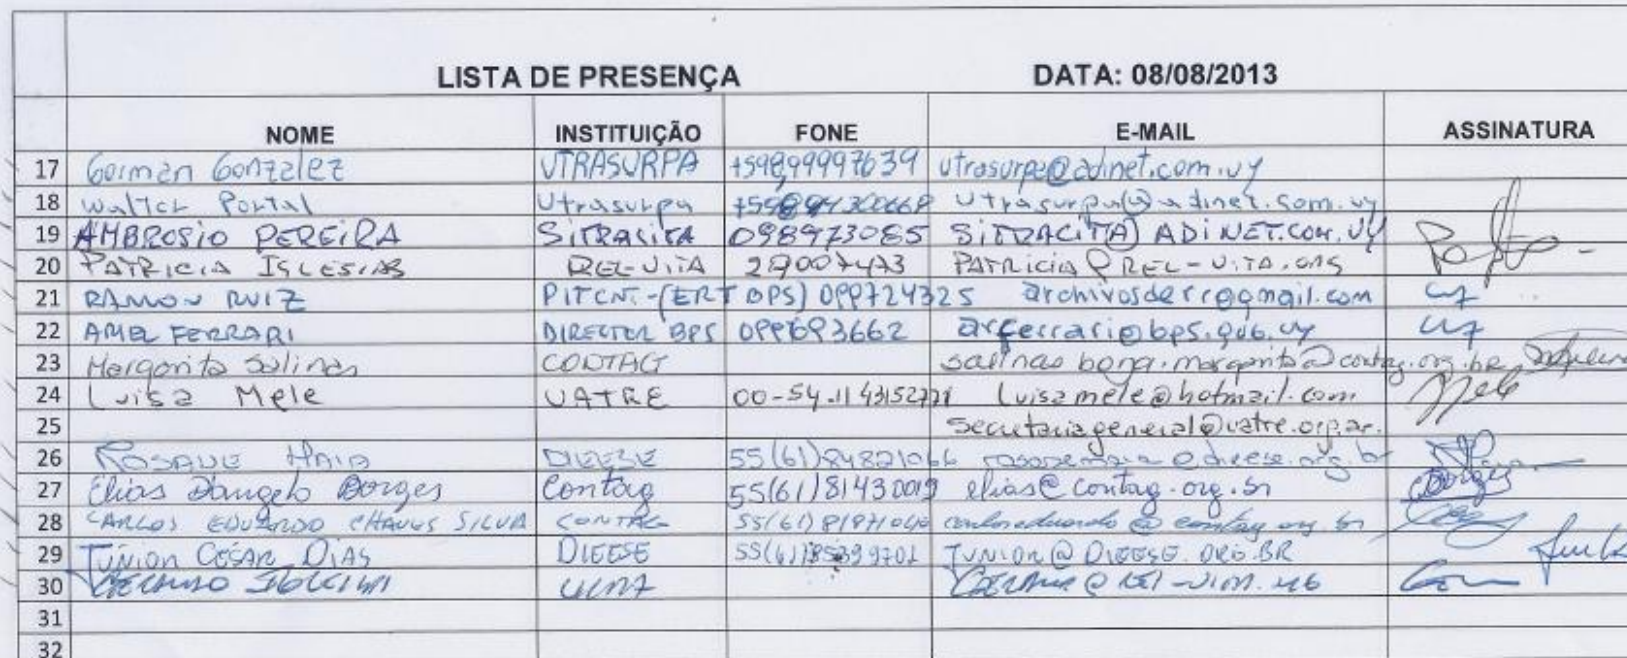 LISTA DE PRESENÇA DATA: 08/08/2013
NOME INSTITUIÇÃO FONE E-MAIL ASSINATURA
17 German Gonzalez UTRASURPA +59899997639 utrasurpa@adinet.com.uy
18 Walter Portal Utrasurpa utrasurpa@adinet.com.uy
19 AMBROSIO PEREIRA SITRACITA 098973085 SITRACITA@ADINET.COM.UY
20 PATRICIA IGLESIAS REL-UITA PATRICIA@REL-UITA.ORG
21 RAMON RUIZ PITCNT-(ERT BPS) 099724325 archivosderr@gmail.com
22 ARIEL FERRARI DIRECTOR BPS 099693662 arferrari@bps.gub.uy
23 Margarita Salinas CONTAG
24 Luisa Mele UATRE luisamele@hotmail.com Mele
25 secretariageneral@uatre.org.ar
26 ROSANE MAIA DIEESE 55(61)84821066
27 Elias Dangelo Borges Contag 55(61)81430019 elias@contag.org.br Borges
28 CARLOS EDUARDO CHAVES SILVA CONTAG carloseduardo@contag.org.br
29 JÚNIOR CÉSAR DIAS DIEESE JUNIOR@DIEESE.ORG.BR
30
31
32